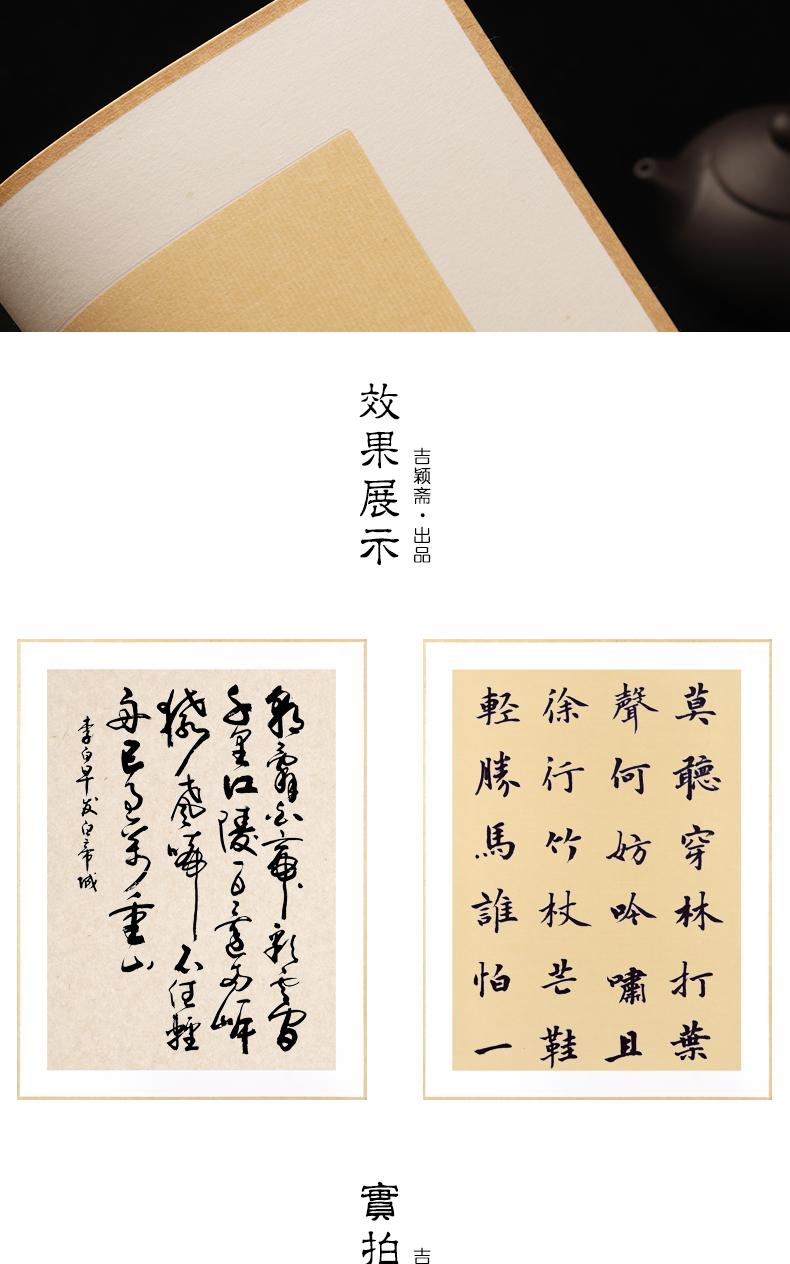 效果展示
吉颖斋·出品
朝辭白帝彩雲間
千里江陵一日還兩岸
猿聲啼不住輕
舟已過萬重山
李白早发白帝城
莫聽穿林打葉
聲何妨吟嘯且
徐行竹杖芒鞋
輕勝馬誰怕一
實拍
吉